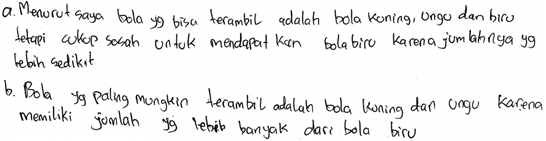 a. Menurut saya bola yg bisa terambil adalah bola kuning, ungu dan biru
tetapi cukup susah untuk mendapat kan bola biru karena jumlahnya yg
lebih sedikit
b. Bola yg paling mungkin terambil adalah bola kuning dan ungu karena
memiliki jumlah yg lebih banyak dari bola biru